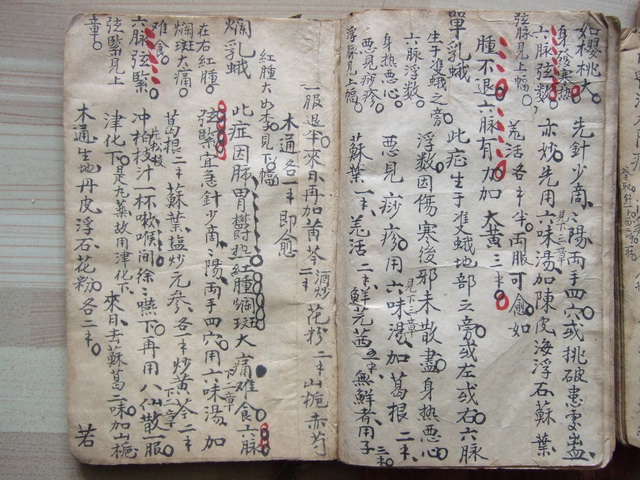 如櫻桃大。先針少商、商陽兩手四穴。或挑破患處盡
身發寒熱
六脉弦數，亦妙。先用六味湯加陳皮海浮石蘇葉
弦脉見上幅。羌活各半。兩服可愈。如
腫不退六脉有力加大黃三。
單乳蛾 此症生于雙蛾地部之旁或左或右六脉
生于雙蛾之旁 浮數因傷寒後邪未散盡身热惡心
六脉浮數。
身热惡心 惡見痧疹用六味湯加葛根二
惡見痧疹。
浮脉見下幅。蘇葉一羌活二鮮芫茜無鮮者用子
一服退半來日再加黄芩酒炒花粉二山梔赤芍
木通各一即愈
紅腫大如李見下幅
爛乳蛾 此症因肺胃鬱热紅腫爛斑大痛难食六脉
在右紅腫 弦緊宜急針少商、商陽兩手四穴用六味湯加
爛斑大痛
难食。葛根二蘇葉塩炒元参各一炒黄芩二
六脉弦緊 冲梧枝汁一杯嗽喉間徐嚥下再用八仙散一服
弦緊見上 津化下是丸藥故用津化下。來日去蘇葛二味加山梔
章。木通生地丹皮浮石花粉各二。若